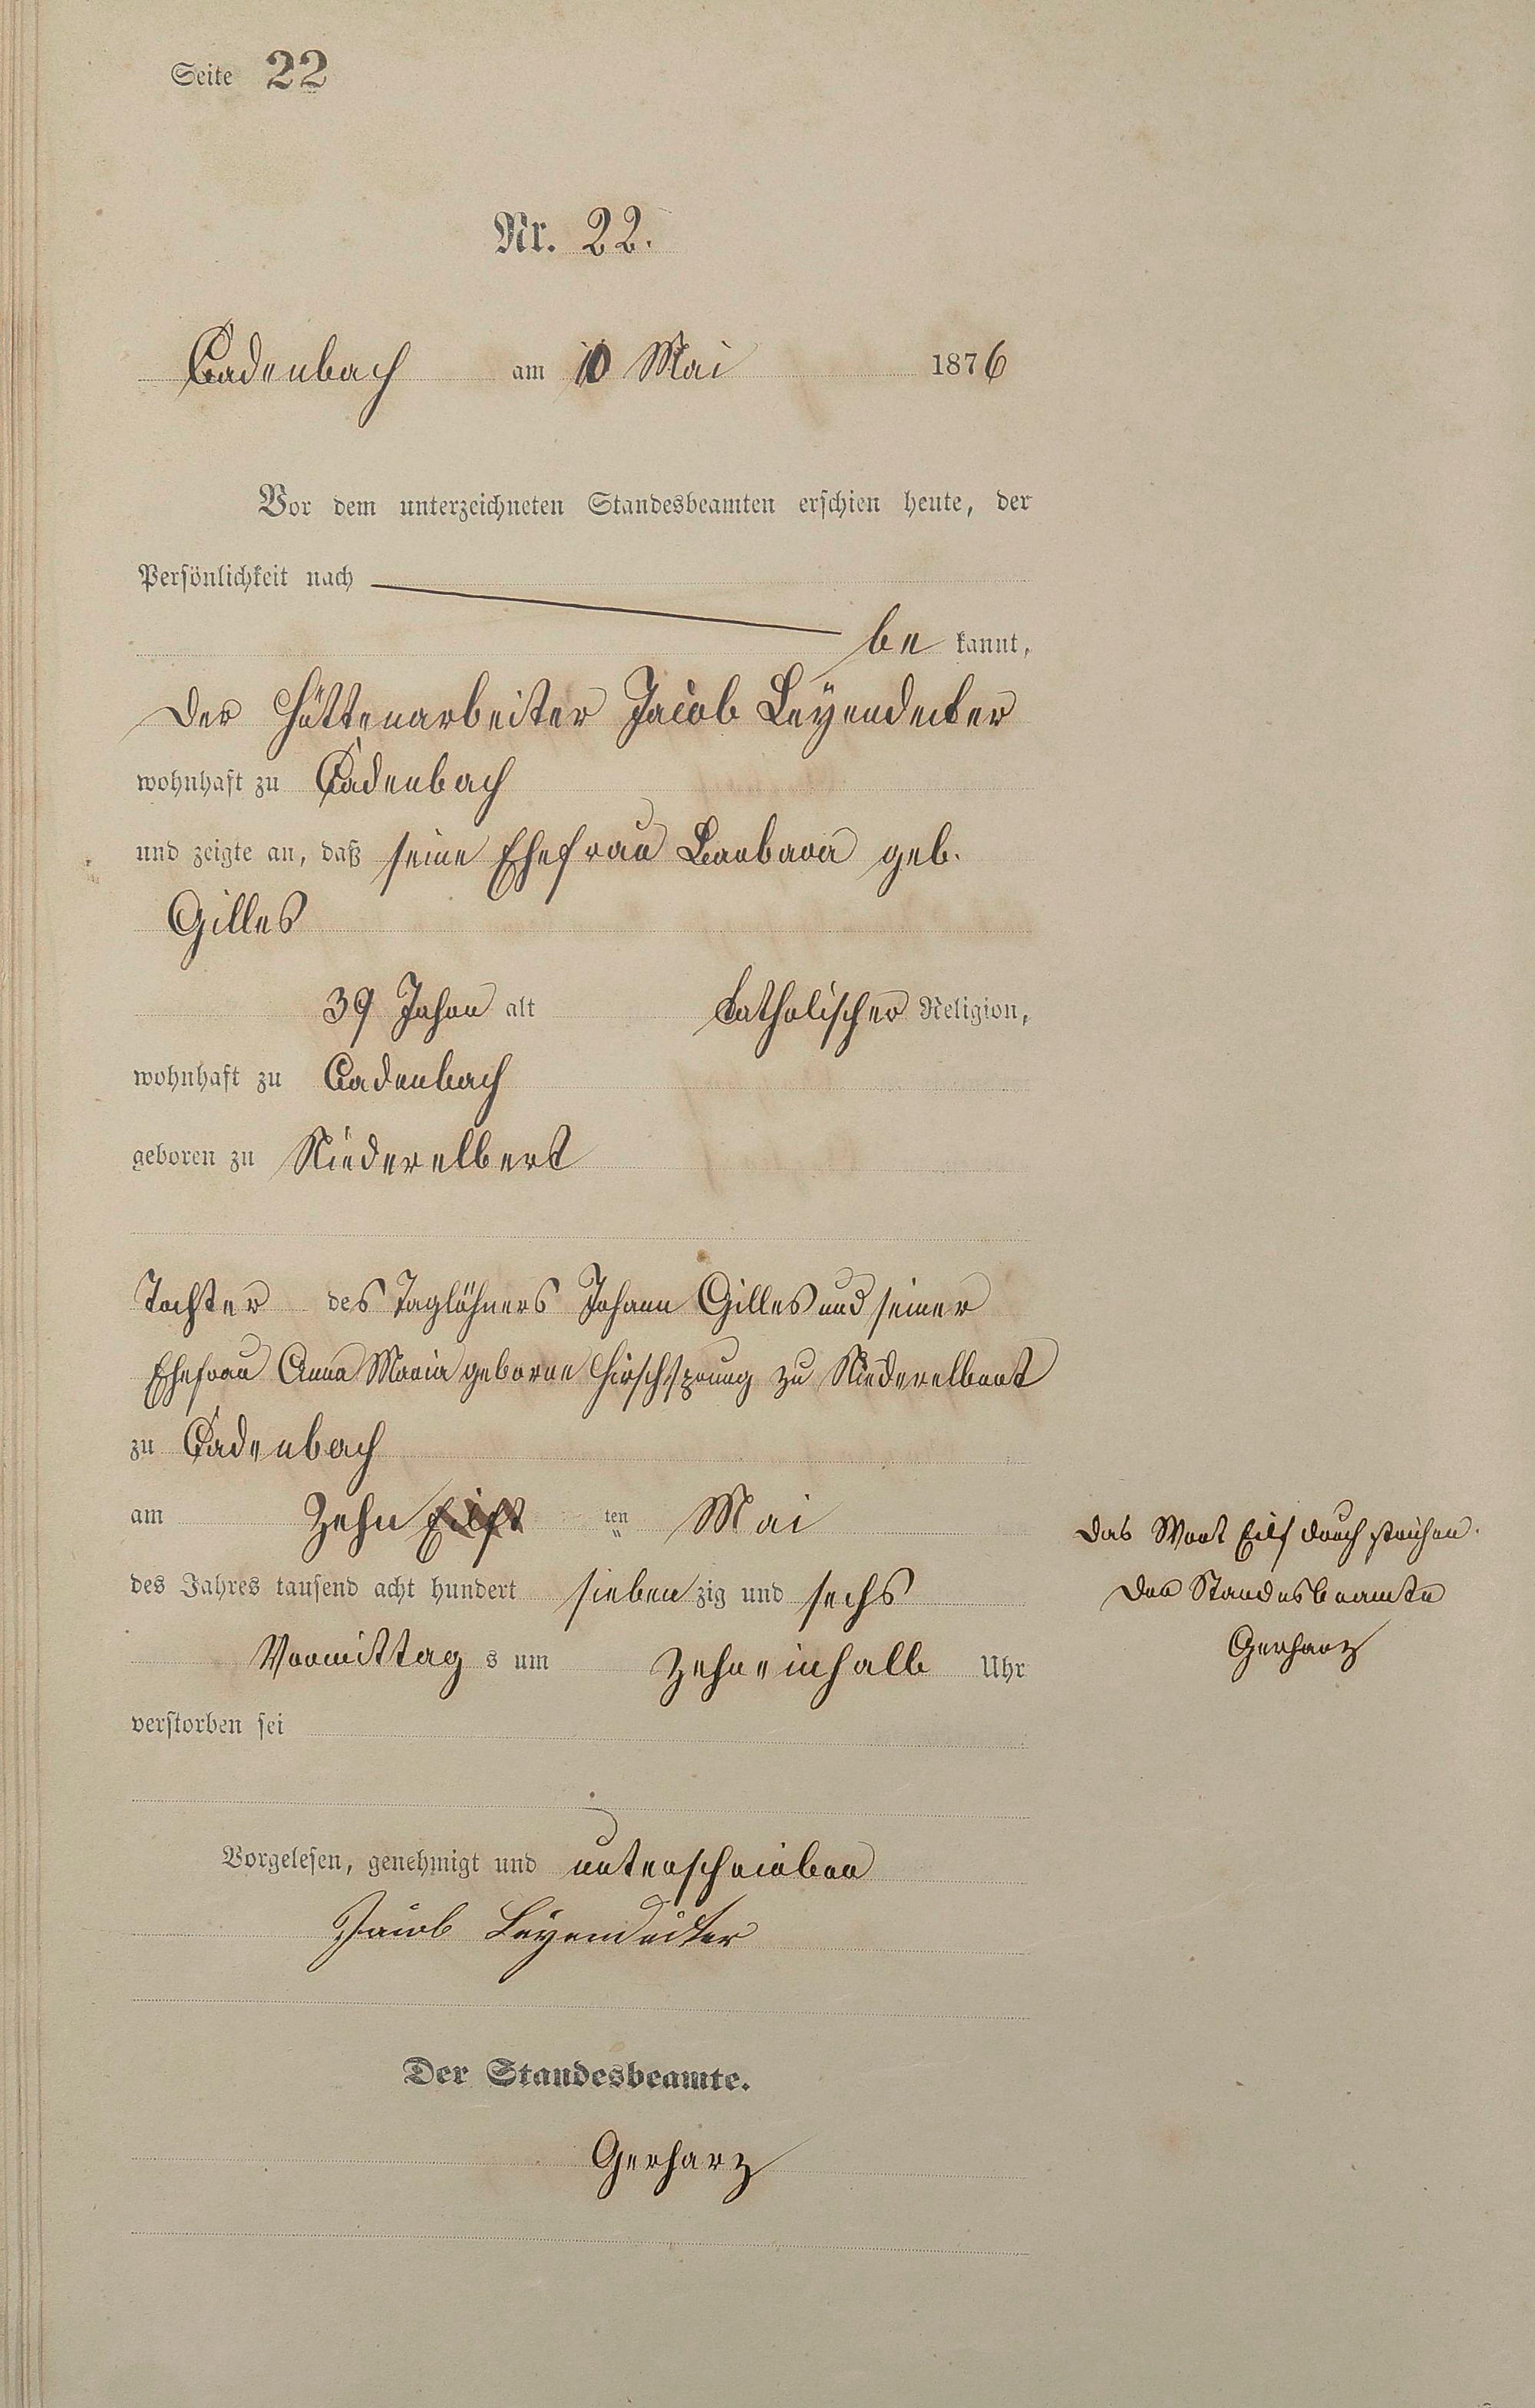 Seite 22
Nr. 22.
Cadenbach am 10 Mai 1876
Vor dem unterzeichneten Standesbeamten erschien heute, der
Persönlichkeit nach
be kannt,
der Hüttenarbeiter Jacob Leÿendecker
wohnhaft zu Cadenbach
und zeigte an, daß seine Ehefrau Barbara geb.
Gilles
39 Jahre alt katholischer Religion,
wohnhaft zu Cadenbach
geboren zu Niederelbert
Tochter des Taglöhners Johann Gilles und seiner
Ehefrau Anna Maria geborne Hirschsprung zu Niederelbert
zu Cadenbach
am Zehn Eilft ten Mai
des Jahres tausend acht hundert sieben zig und sechs
Vormittag s um Zehneinhalb Uhr
verstorben sei
Das Wort Eilf durchstrichen.
Der Standesbeamte
Gerharz
Vorgelesen, genehmigt und unterschrieben
Jacob Leyendecker
Der Standesbeamte.
Gerharz